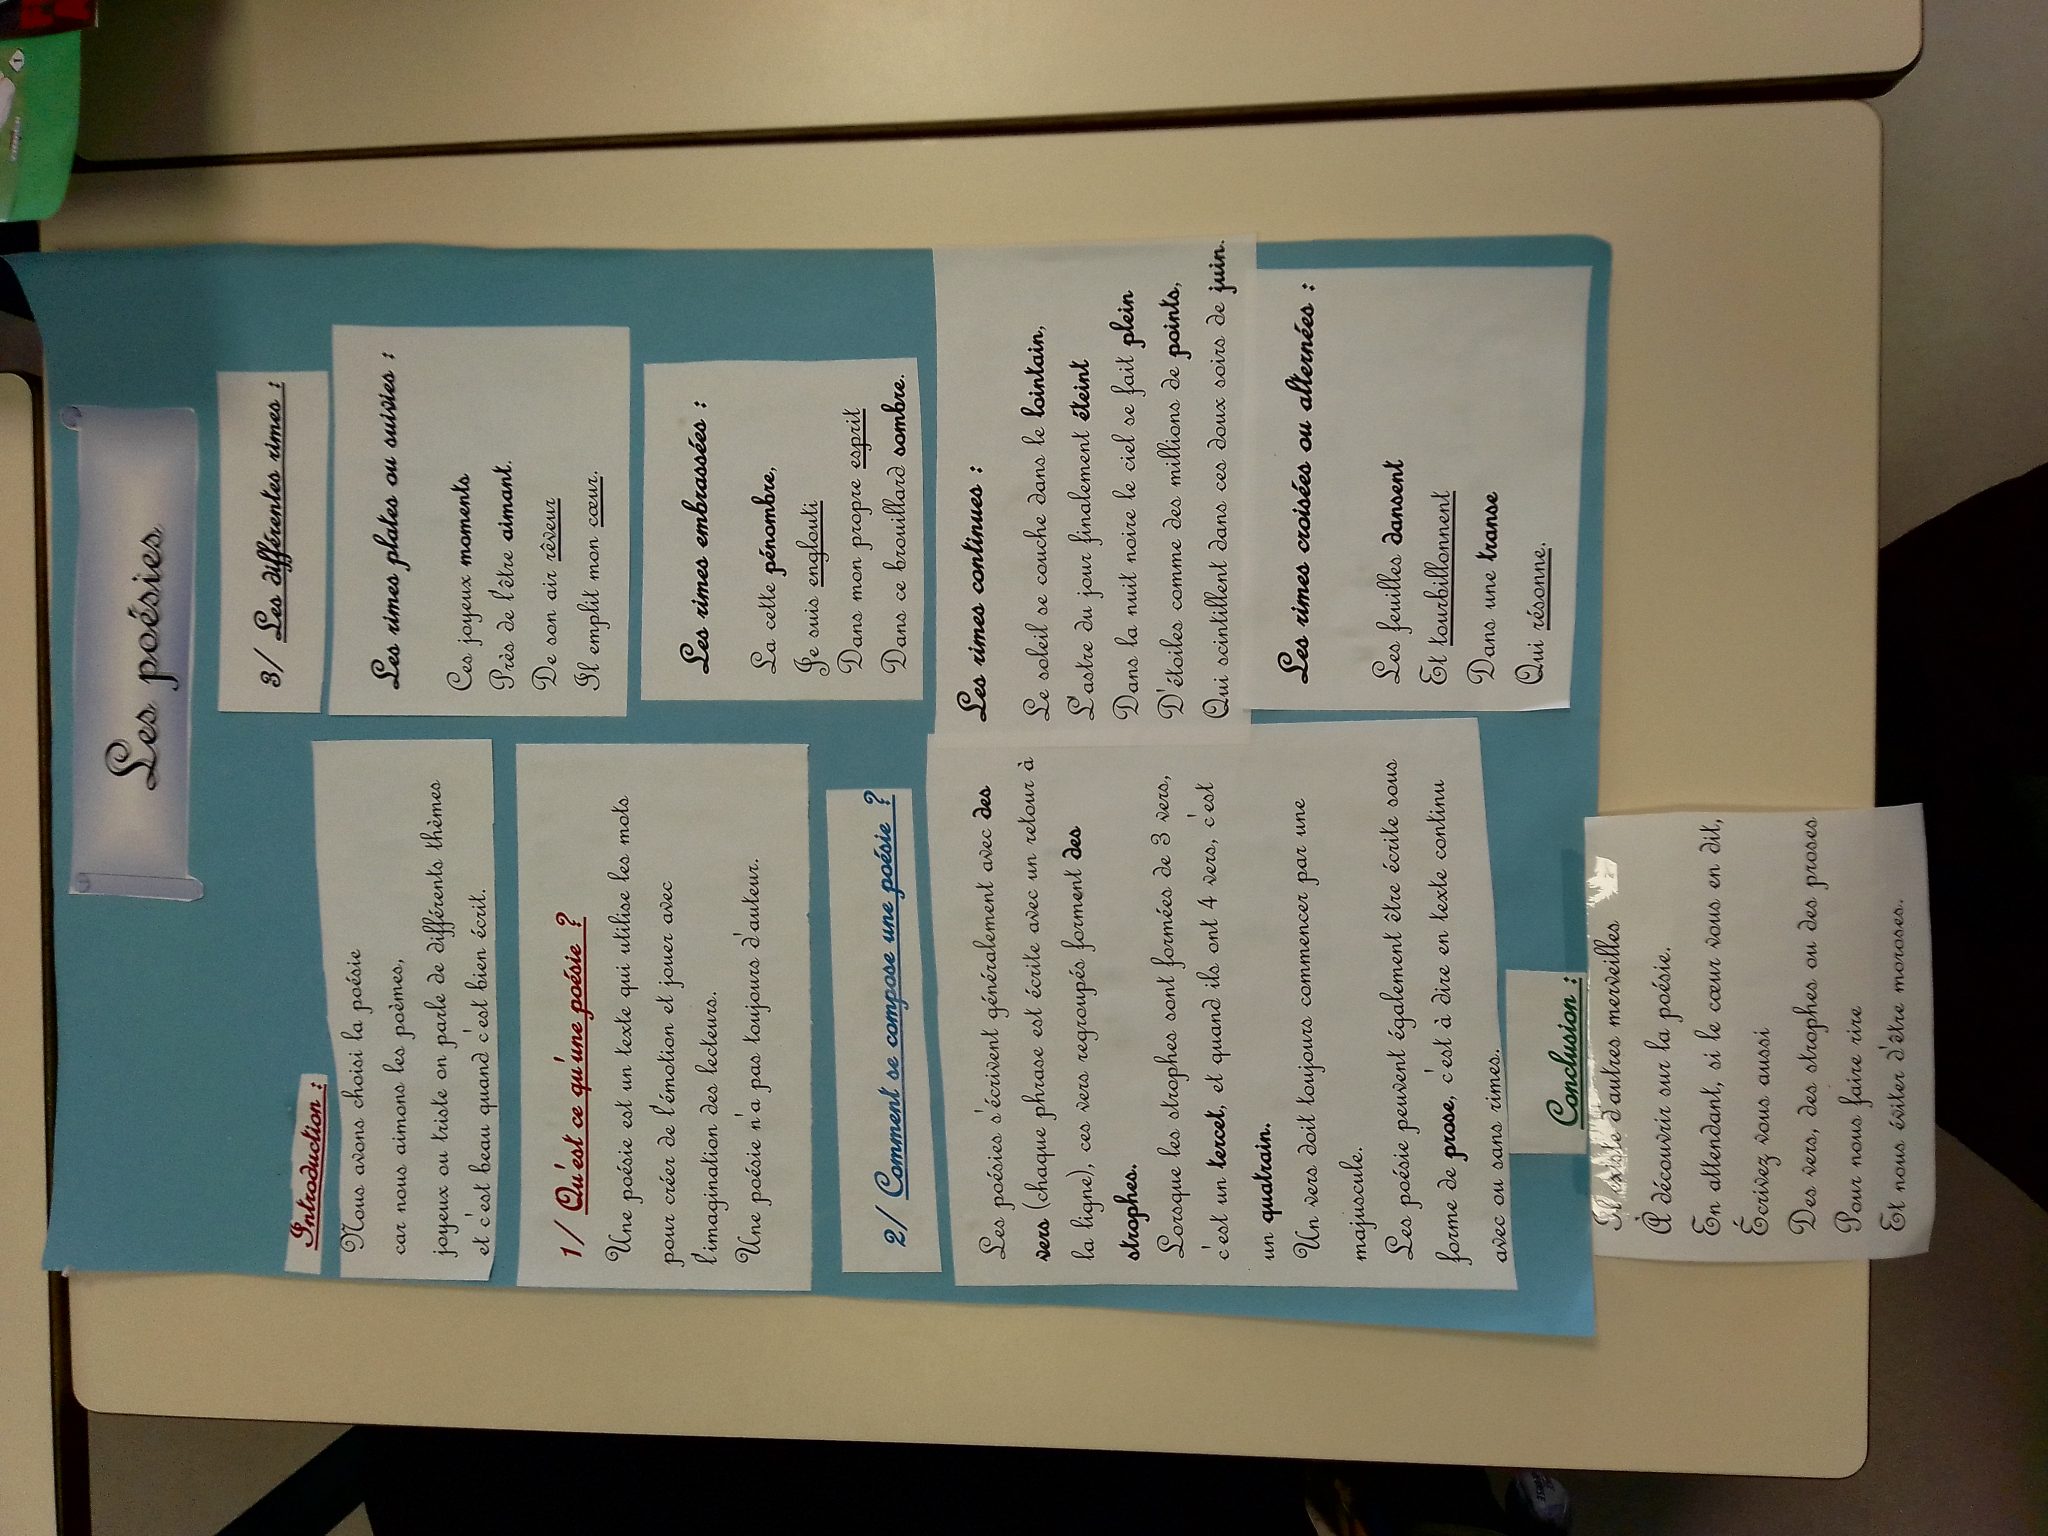 Les poésies
Introduction :
Nous avons choisi la poésie
car nous aimons les poèmes,
joyeux ou triste on parle de différents thèmes
et c'est beau quand c'est bien écrit.
1/ Qu'est ce qu'une poésie ?
Une poésie est un texte qui utilise les mots
pour créer de l'émotion et jouer avec
l'imagination des lecteurs.
Une poésie n'a pas toujours d'auteur.
2/ Comment se compose une poésie ?
Les poésies s'écrivent généralement avec des
vers (chaque phrase est écrite avec un retour à
la ligne), ces vers regroupés forment des
strophes.
Lorsque les strophes sont formées de 3 vers,
c'est un tercet, et quand ils ont 4 vers, c'est
un quatrain.
Un vers doit toujours commencer par une
majuscule.
Les poésie peuvent également être écrite sous
forme de prose, c'est à dire en texte continu
avec ou sans rimes.
3/ Les différentes rimes :
Les rimes plates ou suivies :
Ces joyeux moments
Près de l'être aimant.
De son air rêveur
Il emplit mon cœur.
Les rimes embrassées :
La cette pénombre,
Je suis englouti
Dans mon propre esprit
Dans ce brouillard sombre.
Les rimes continues :
Le soleil se couche dans le lointain,
L'astre du jour finalement éteint
Dans la nuit noire le ciel se fait plein
D'étoiles comme des millions de points,
Qui scintillent dans ces doux soirs de juin.
Les rimes croisées ou alternées :
Les feuilles dansent
Et tourbillonnent
Dans une transe
Qui résonne.
Conclusion :
Il existe d'autres merveilles
À découvrir sur la poésie.
En attendant, si le cœur vous en dit,
Écrivez vous aussi
Des vers, des strophes ou des proses
Pour nous faire rire
Et nous éviter d'être moroses.